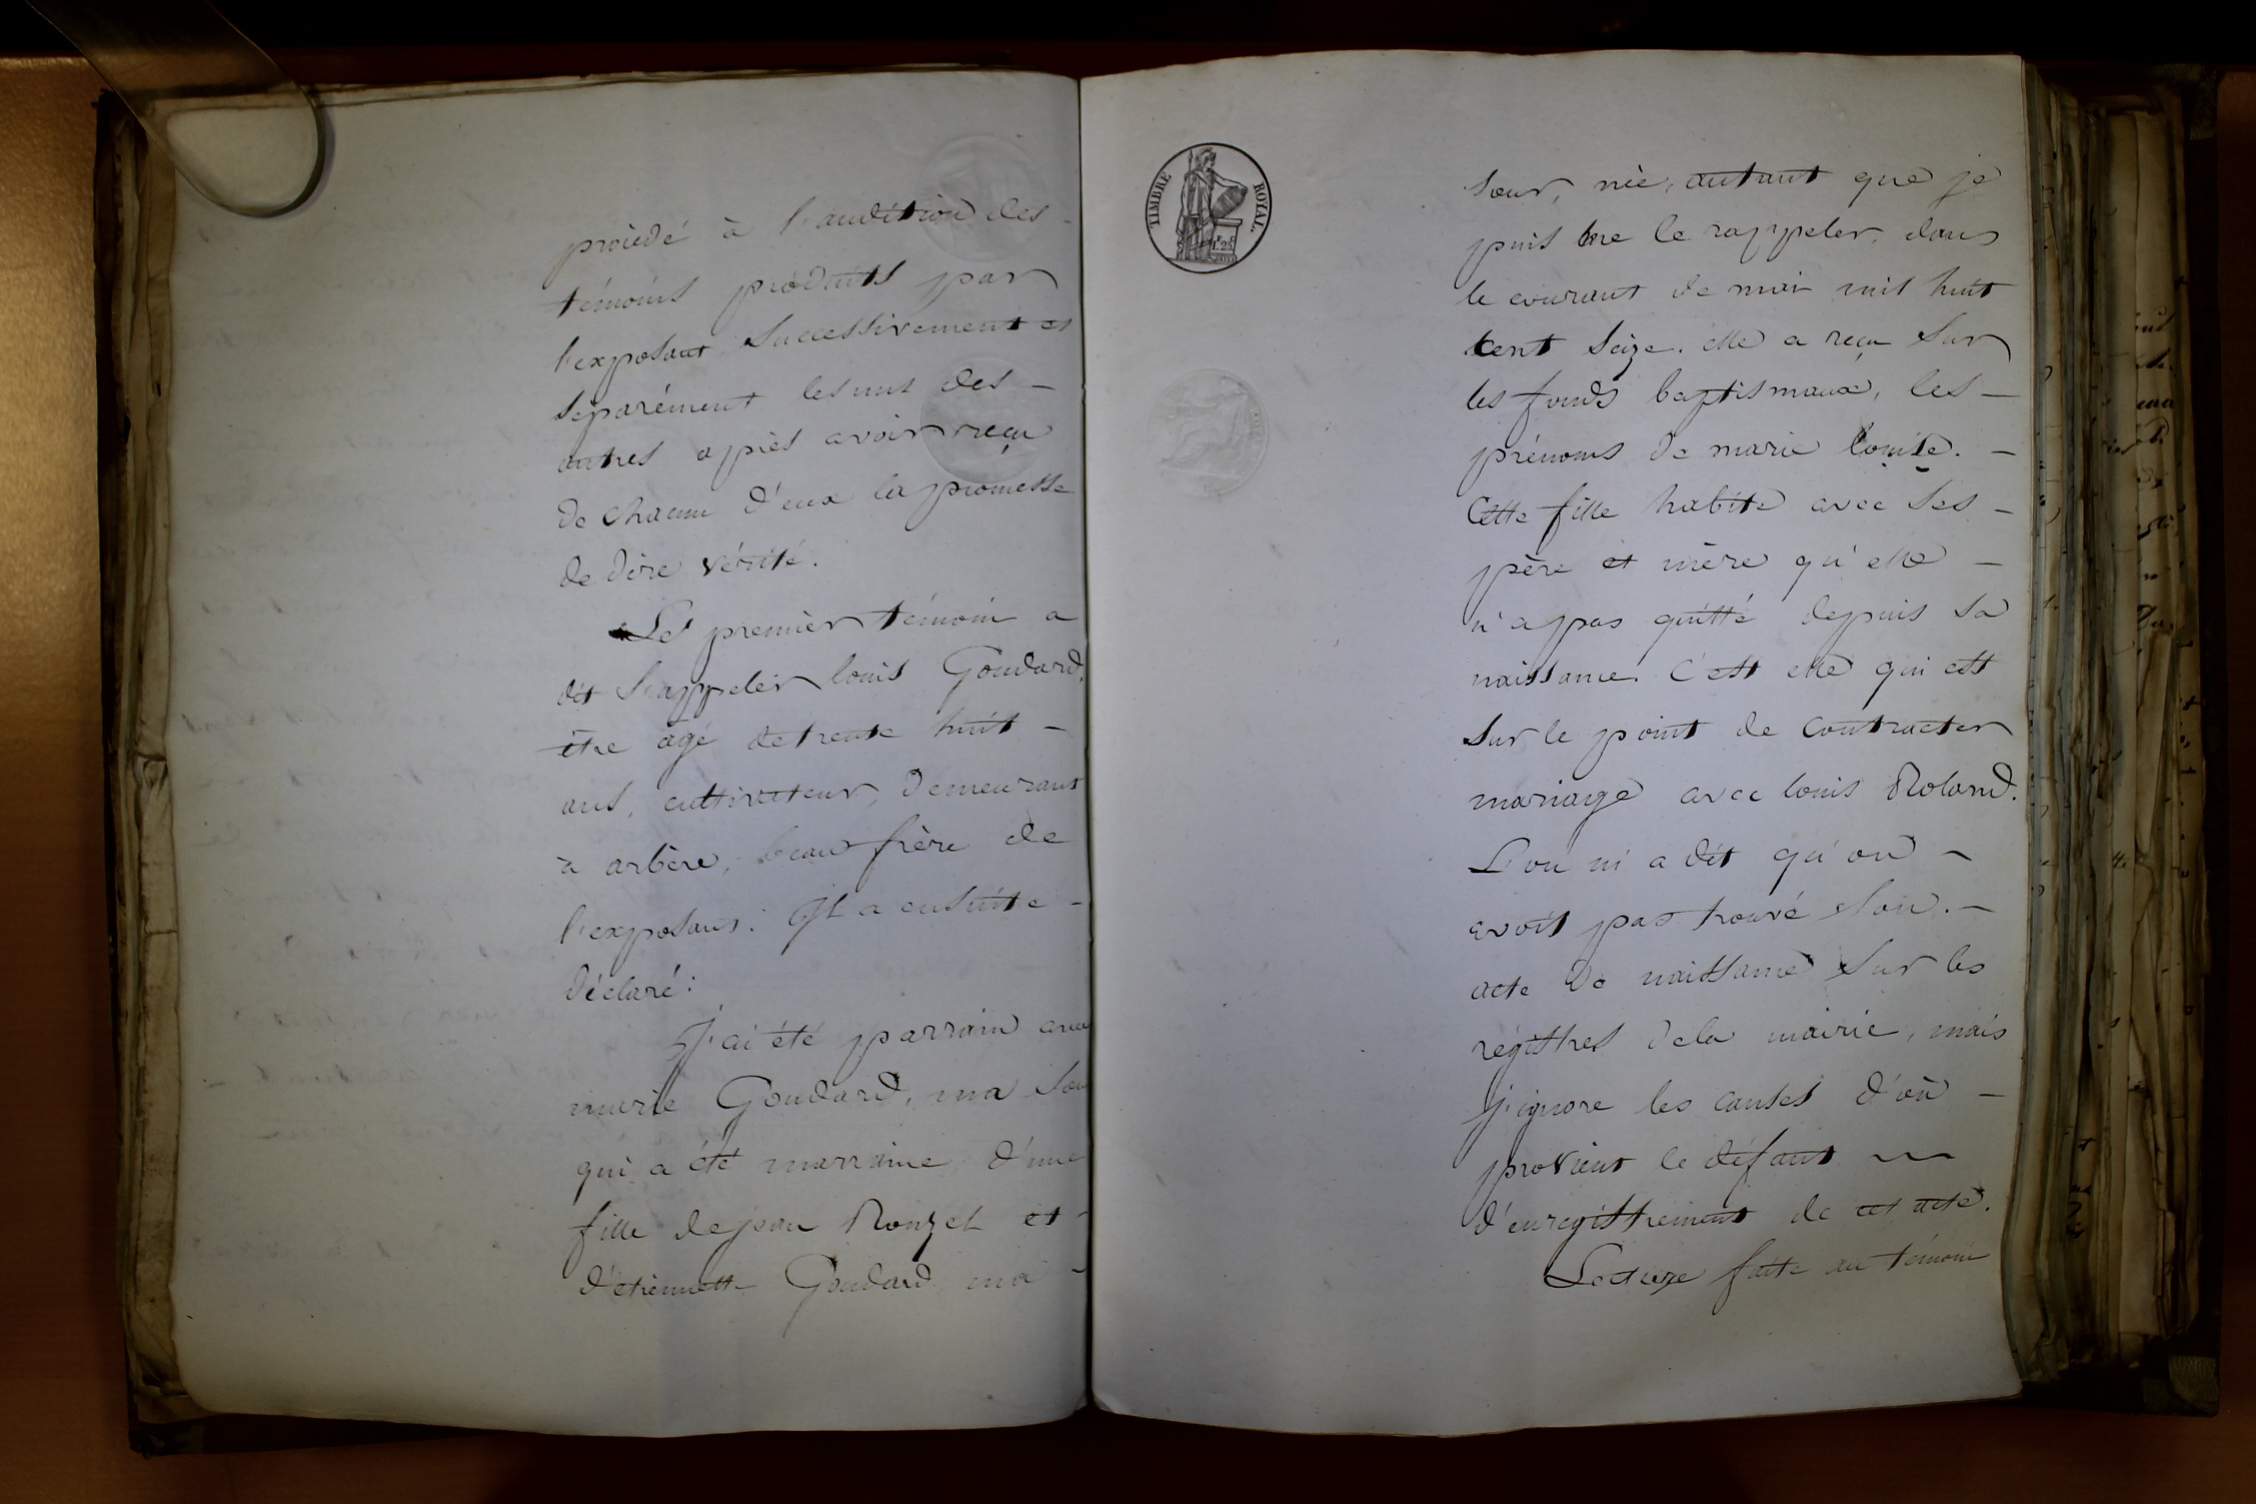 procédé à l'audition des -
témoins produits par
l'exposant successivement et
séparément les uns des -
autres après avoir reçu
de chacun d'eux la promesse
de dire vérité.
Le premier témoin a
dit s'appeler louis Goudard,
être âgé de trente huit -
ans, cultivateur, demeurant
à arbère, beau frère de
l'exposant. Il a ensuite -
déclaré:
J'ai été parrain avec
marie Goudard, ma sœu
qui a été marraine d'une
fille de jean Rouzet et -
d'étiennette Goudard ma -
TIMBRE ROYAL.
sœur, née, autant que je
puis me le rappeler, dans
le courant de mai mil huit
cent seize. elle a reçu sur
les fonds baptismaux, les -
prénoms de marie louise. -
Cette fille habite avec ses -
père et mère qu'elle -
n'a pas quitté depuis sa
naissance. C'est elle qui est
sur le point de contracter
mariage avec louis Roland.
L'on m'a dit qu'on -
avoit pas trouvé son. -
acte de naissance sur les
régistres de la mairie, mais
j'ignore les causes d'où -
provient le défaut
d'enregistrement de cet acte.
Lecture faite au témoin